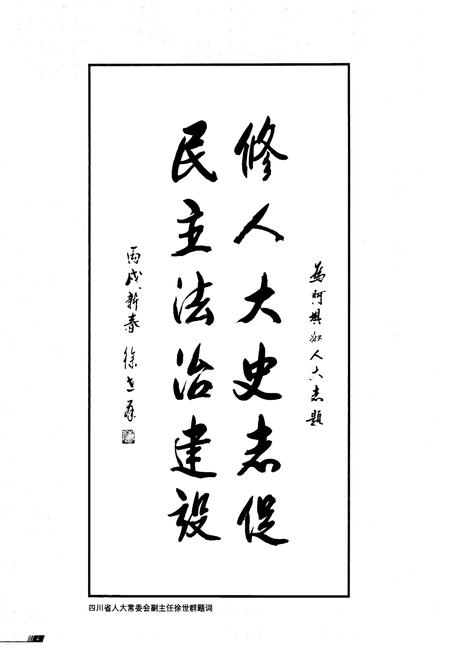 为阿坝州人大志题
修人大史志促
民主法治建设
丙戌新春 徐世群
四川省人大常委会副主任徐世群题词